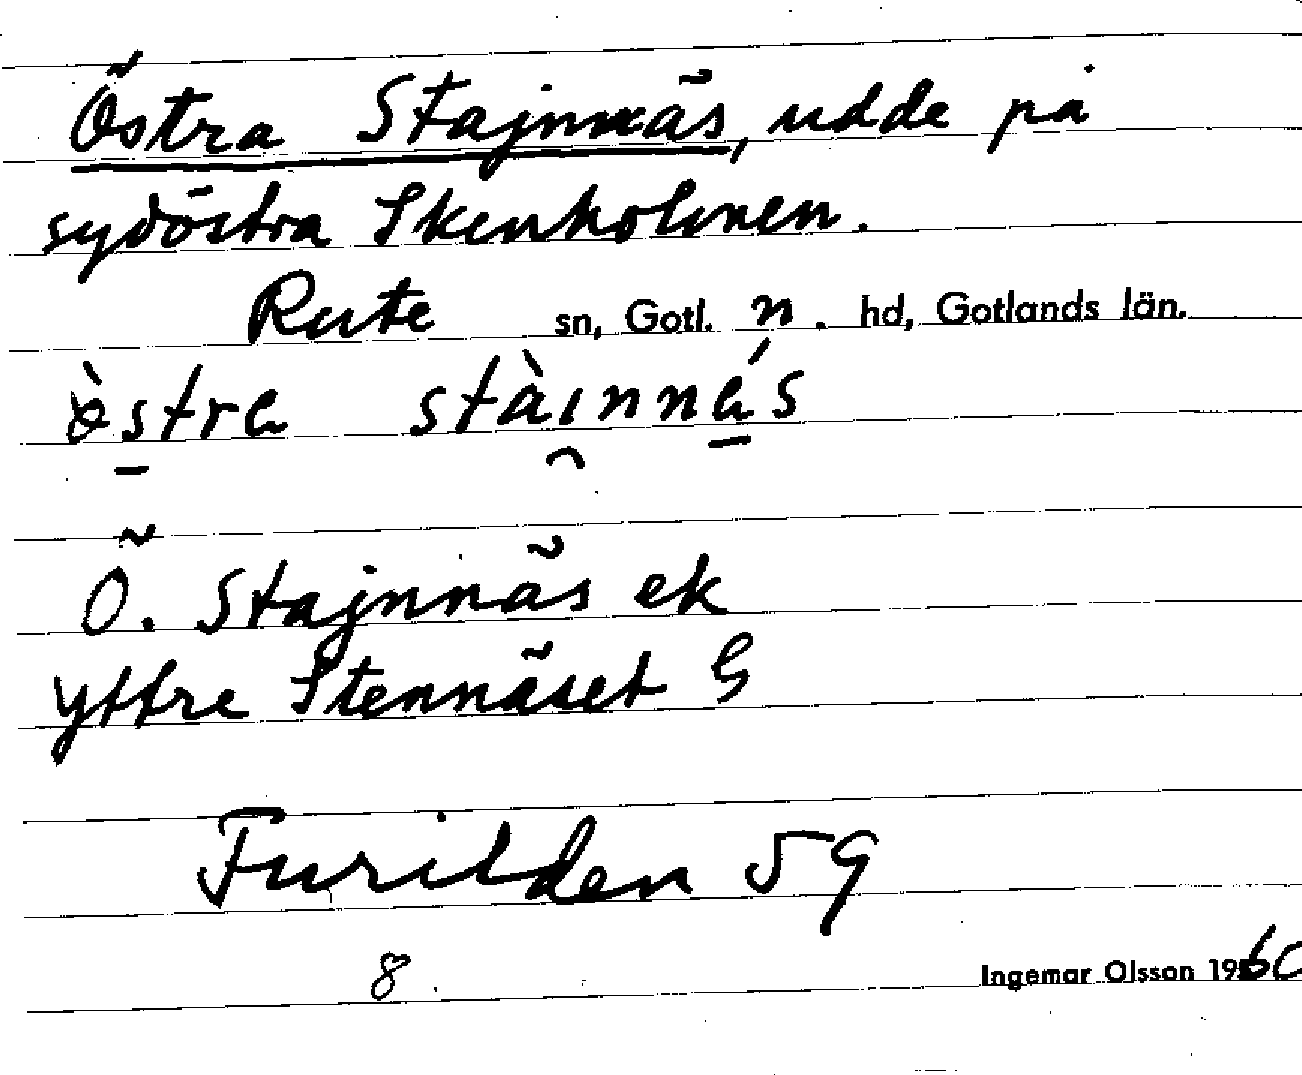 Östra Stajnnäs, udde på
sydöstra Skenholmen.
Rute sn, Gotl. n. hd, Gotlands län.
östra stàınnás
Ö. Stajnnäs ek
Yttre Stennäset G
Furilden 59
8 Ingemar Olsson 1960